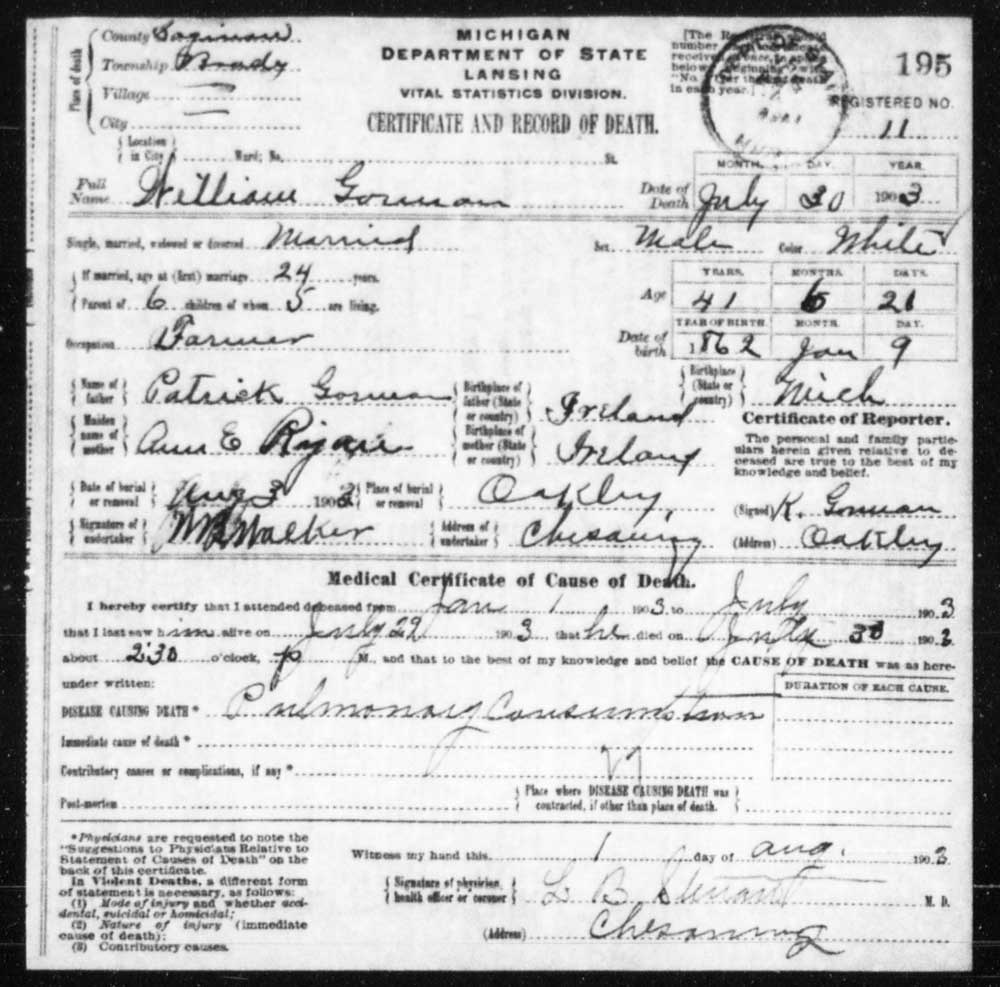 MICHIGAN
DEPARTMENT OF STATE
LANSING
VITAL STATISTICS DIVISION.
CERTIFICATE AND RECORD OF DEATH.
Place of death
County Saginaw
Township Brady
Village
City
[The
number
receive
below
"No.
in each year.]
195
REGISTERED NO.
11
Location in City Ward; No. St.
Full Name William Gorman
Date of Death
MONTH. DAY. YEAR.
July 30 1903
Single, married, widowed or divorced Married Sex Male Color White
If married, age at (first) marriage 24 years.
Parent of 6 children of whom 5 are living.
Age
YEARS. MONTHS. DAYS.
41 6 21
Occupation Farmer
Date of birth
YEAR OF BIRTH. MONTH. DAY.
1862 Jan 9
Name of father Patrick Gorman
Birthplace of father (State or country) Ireland
Birthplace (State or country) Mich
Maiden name of mother Ann E
Birthplace of mother (State or country) Ireland
Certificate of Reporter.
The personal and family partic-
ulars herein given relative to de-
ceased are true to the best of my
knowledge and belief.
Date of burial or removal Aug 3 1903
Place of burial or removal Oakley,
(Signed) K. Gorman
Signature of undertaker Walker
Address of undertaker Chesaning
(Address) Oakley
Medical Certificate of Cause of Death.
I hereby certify that I attended deceased from Jan 1 1903 to July 1903
that I last saw him alive on July 29 1903, that he died on July 30 1903
about 2:30 o'clock, P M., and that to the best of my knowledge and belief the CAUSE OF DEATH was as here-
under written:
DURATION OF EACH CAUSE.
DISEASE CAUSING DEATH* Pulmonary Consumption
Immediate cause of death*
Contributory causes or complications, if any*
Post-mortem
Place where DISEASE CAUSING DEATH was contracted, if other than place of death.
*Physicians are requested to note the
"Suggestions to Physicians Relative to
Statement of Causes of Death" on the
back of this certificate.
In Violent Deaths, a different form
of statement is necessary, as follows:
(1) Mode of injury and whether acci-
dental, suicidal or homicidal;
(2) Nature of injury (immediate
cause of death);
(3) Contributory causes.
Witness my hand this 1 day of Aug. 1903
Signature of physician, health officer or coroner L B Stewart M. D.
(Address) Chesaning